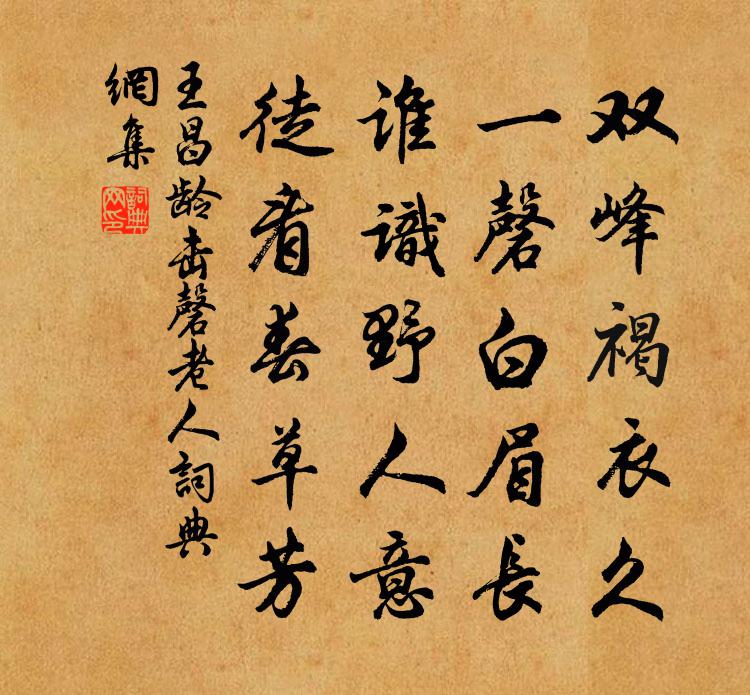 双峰褐衣久
一磬白眉長
谁識野人意
徒看春草芳
王昌龄击磬老人詞典
網集
詞典
网印